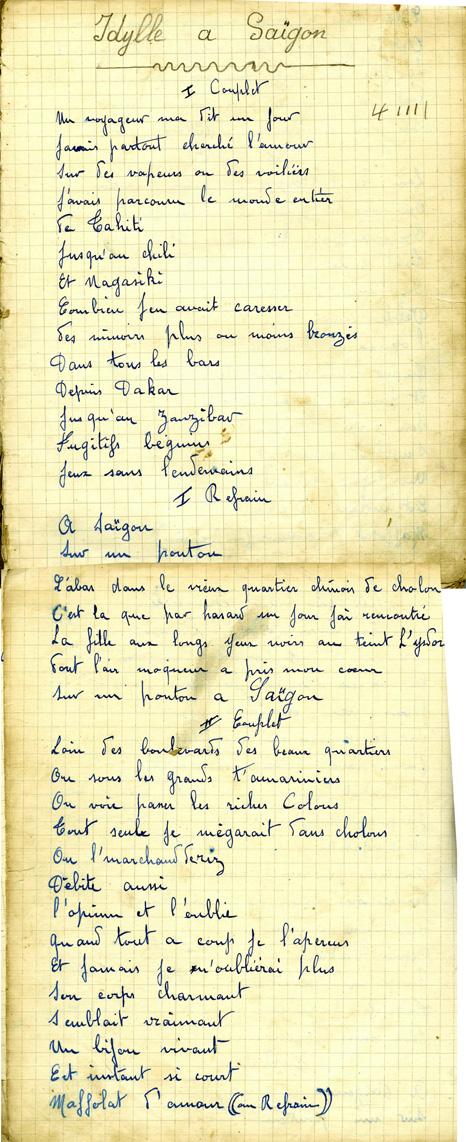 Idylle a Saïgon
I Couplet
Un voyageur ma dit un jour
4 1111
Javais partout cherché l'amour
Sur des vapeurs ou des voiliérs
J'avais parcouru le monde entiér
de Tahiti
Jusqu'au chili
Et Nagasiki
Combien j'en avait caresser
des minois plus ou moins bronzés
Dans tous les bars
Depuis Dakar
Jusqu'au Zanzibar
Fugitifs béguins
Jeux sans lendemains
I Refrain
A Saïgon
Sur un ponton
L'abas dans le vieux quartier chinois de cholon
C'est la que par hasard un jour j'ai rencontré
La fille aux longs yeux noirs au teint
dont l'air moqueur a pris mon cœur
Sur un ponton a Saïgon
II Couplet
Loin des boulevards des beaux quartiers
Ou sous les grands t'amariniers
On voie passer les riches Colons
Tout seule je mégarait dans cholons
Ou l'marchand deriz
Débite aussi
l'opium et l'oublie
quand tout a coup je l'apercus
Et jamais je n'oubliérai plus
Son corps charmant
Semblait vraimant
Un bijou vivant
Cet instant si court
Maffolat d'amour ((au Refrain))